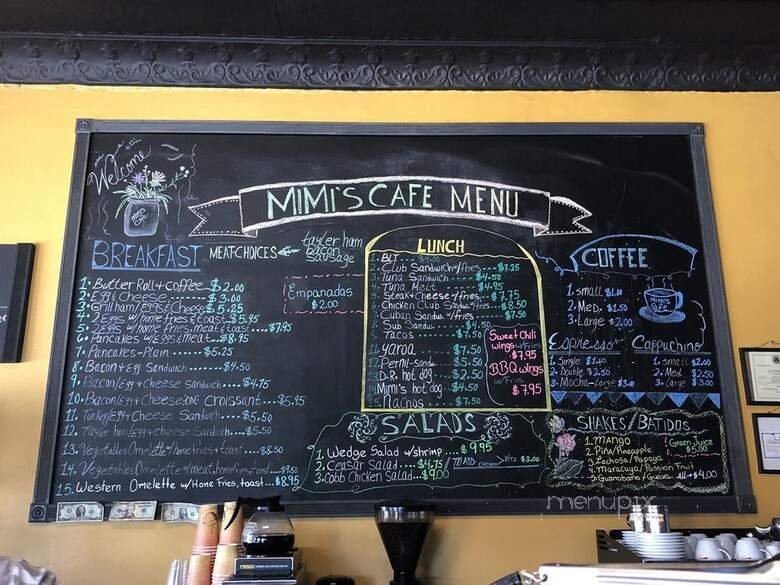 Welcome
MIMI'S CAFE MENU
BREAKFAST
MEAT CHOICES
tayler ham
bacon
sausage
1. Butter Roll + coffee $2.00
2. Egg & Cheese $3.00
3. Grilham/Eggs & Cheese $5.25
4. 2 Eggs w/home fries & toast $5.95
5. 2 Eggs w/home fries, meat & toast $7.95
6. Pancakes w/eggs & meat $8.95
7. Pancakes - Plain $5.25
8. Bacon & Egg Sandwich $4.50
9. Bacon/Egg + Cheese Sandwich $4.75
10. Bacon/Egg + Cheese on Croissant $5.95
11. Turkey/Egg + Cheese Sandwich $5.50
12. Tayler ham/Egg + Cheese Sandwich $5.50
13. Vegetables Omelette/homefries + toast $8.50
14. Vegetables Omelette/meat, homefries, toast $9.50
15. Western Omelette w/Home Fries, toast $8.95
Empanadas
$2.00
LUNCH
1. BLT $4.00
2. Club Sandwich w/fries $7.25
3. Tuna Sandwich $4.50
4. Tuna Melt $4.95
5. Steak + Cheese w/fries $7.75
6. Chicken Club Sandw. w/fries $8.50
7. Cuban Sandw. w/fries $7.50
8. Sub Sandw. $4.50
9. Tacos $7.50
11. yaroa $7.50
12. Pernil-sand $5.50
13. D.R. hot dog $2.50
14. Mimi's hot dog $4.50
15. Nachos $7.50
Sweet Chili
wings w/Fries
$7.95
BBQ wings
w/Fries
$7.95
SALADS
1. Wedge Salad w/shrimp $9.95
2. Ceasar Salad $4.75 / ADD Chicken Xtra $3.00
3. Cobb Chicken Salad $9.00
COFFEE
1. small $1.00
2. Med. $1.50
3. Large $2.00
Mimi's
Cafe
Espresso
1. Single $1.40
2. Double $2.50
3. Mocha-large $3.00
Cappuchino
1. small $2.00
2. Med $2.50
3. Large $3.00
SHAKES/BATIDOS
1. Mango
2. Piña/Pineapple
3. Lechosa/Papaya
4. Maracuya/Passion Fruit
5. Guanabana/Guava
All → $4.00
Green Juice
$5.00
menupix